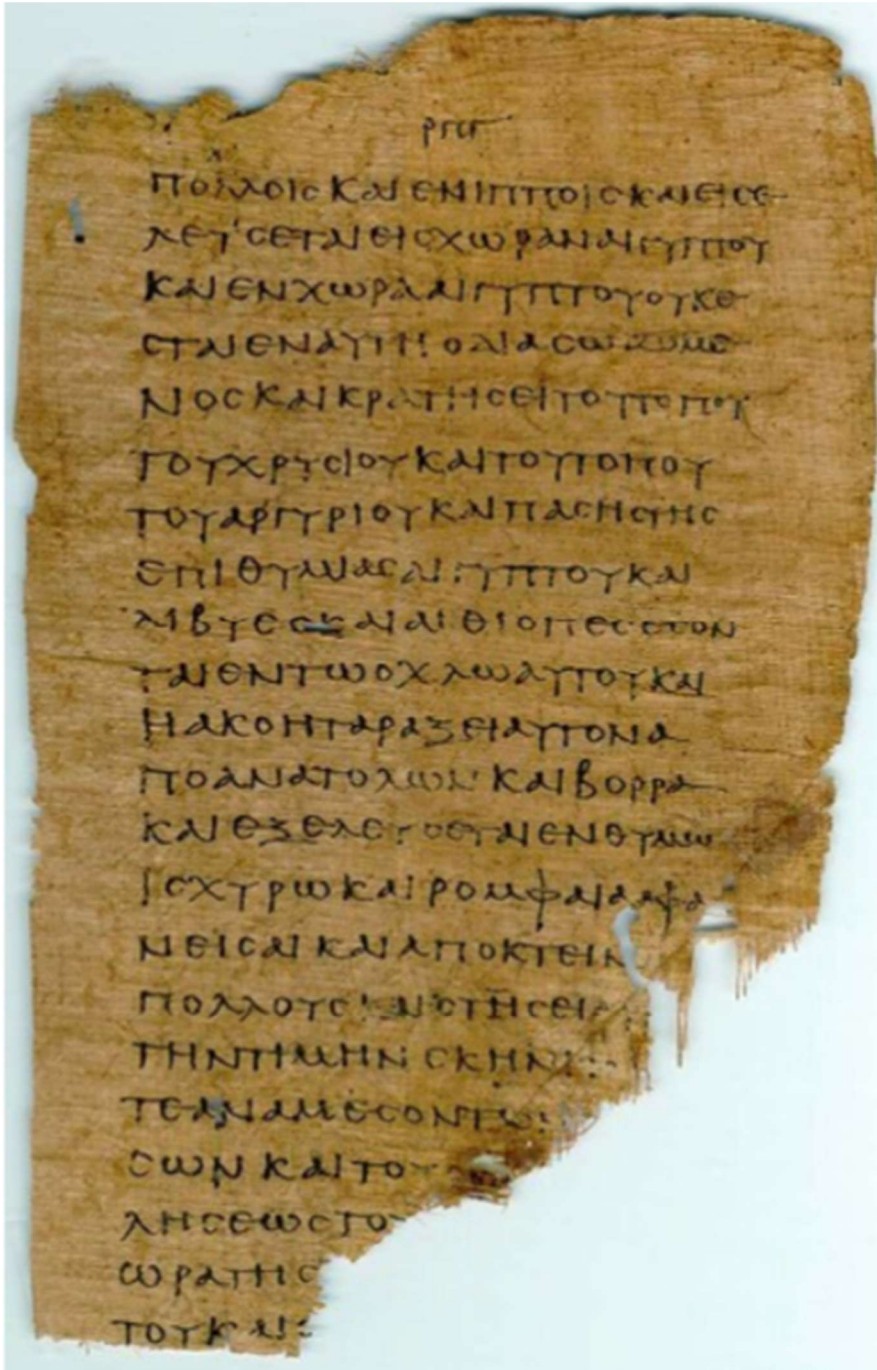 ΠΟΛΛΟΙϹ ΚΑΙ ΕΝ ΙΠΠΟΙϹ ΚΑΙ ΕΙϹΕ
ΛΕΥϹΕΤΑΙ ΕΙϹ ΧΩΡΑΝ ΑΙΓΥΠΤΟΥ
ΚΑΙ ΕΝ ΧΩΡΑ ΑΙΓΥΠΤΟΥ ΟΥΚ Ε
ϹΤΑΙ ΕΝ ΑΥΤΗ Ο ΔΙΑϹΩΖΟΜΕ
ΝΟϹ ΚΑΙ ΚΡΑΤΗϹΕΙ ΤΟΥ ΤΟΠΟΥ
ΤΟΥ ΧΡΥϹΙΟΥ ΚΑΙ ΤΟΥ ΤΟΠΟΥ
ΤΟΥ ΑΡΓΥΡΙΟΥ ΚΑΙ ΠΑϹΗϹ ΤΗϹ
ΕΠΙΘΥΜΙΑϹ ΑΙΓΥΠΤΟΥ ΚΑΙ
ΛΙΒΥΕϹ ΚΑΙ ΑΙΘΙΟΠΕϹ ΕϹΟΝ
ΤΑΙ ΕΝ ΤΩ ΟΧΛΩ ΑΥΤΟΥ ΚΑΙ
Η ΑΚΟΗ ΤΑΡΑΞΕΙ ΑΥΤΟΝ Α
ΠΟ ΑΝΑΤΟΛΩΝ ΚΑΙ ΒΟΡΡΑ
ΚΑΙ ΕΞΕΛΕΥϹΕΤΑΙ ΕΝ ΘΥΜΩ
ΙϹΧΥΡΩ ΚΑΙ ΡΟΜΦΑΙΑ ΑΦΑ
ΝΕΙϹΑΙ ΚΑΙ ΑΠΟΚΤΕΙΝ
ΠΟΛΛΟΥϹ ΚΑΙ ϹΤΗϹΕΙ
ΤΗΝ ΤΙΜΗΝ ϹΚΗΝΗ
ΤΕ ΑΝΑ ΜΕϹΟΝ ΤΩ
ϹΩΝ ΚΑΙ ΤΟΥ
ΛΗϹΕΩϹ ΤΟΥ
ΩΡΑ ΤΗϹ
ΤΟΥ ΚΑΙ